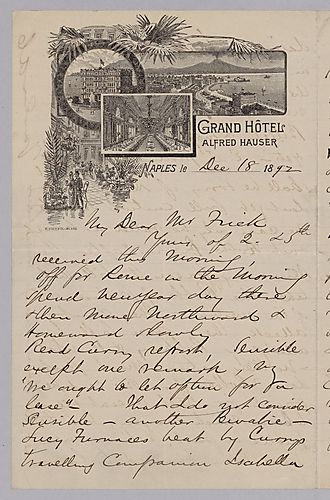 GRAND HÔTEL
ALFRED HAUSER
NAPLES le Dec 18 1892
My Dear Mr Frick
Yours of 2. & 5th
received this Morning
off for Rome in the Morning
spend New year day there
then move Northward &
Homeward slowly
Read Curry report, Sensible
except one remark, viz
"We ought to let option for
lease" — That I do not consider
Sensible — another —
Lucy Furnaces beat by Currys
travelling Companion Isabella